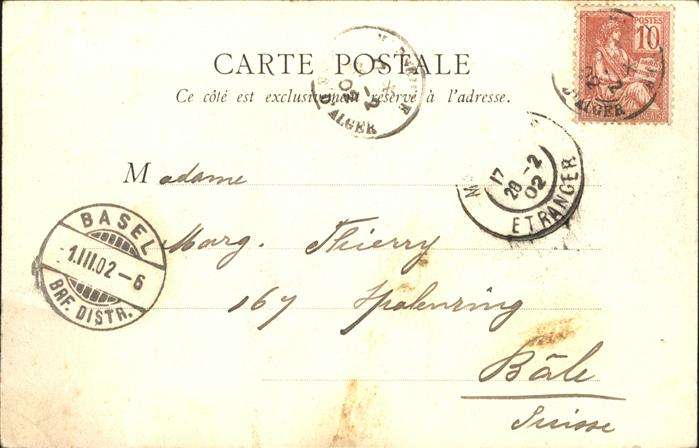 CARTE POSTALE
Ce côté est exclusivement réservé à l'adresse.
POSTES
10
D'ALGER
D'ALGER
17
28-2
02
ETRANGER
Madame
BASEL
-1.III.02-6
BRF. DISTR.
Marg. Thierry
167 Spalenring
Bâle
Suisse